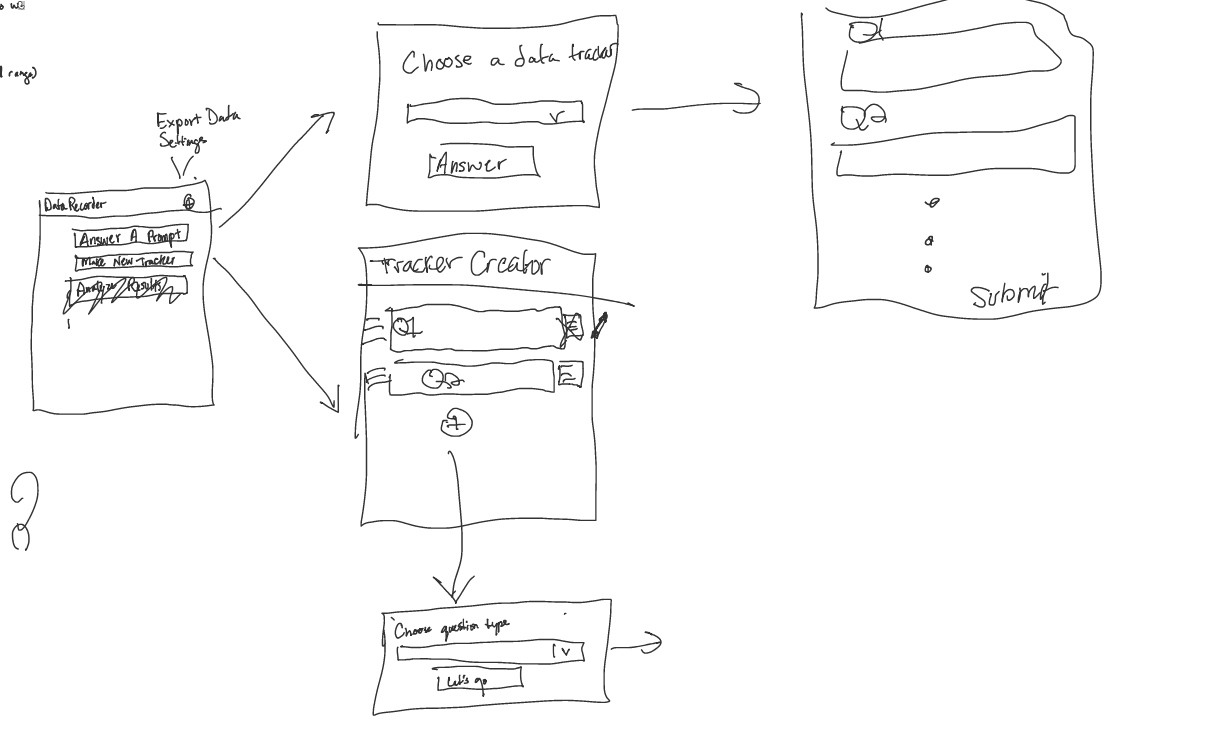 range)
Export Data
Settings
Data Recorder
Answer A Prompt
Make New Tracker
Analyze Results
Choose a data tracker
Answer
Q1
Q2
Submit
Tracker Creator
Q1
Q2
Choose question type
Let's go
?